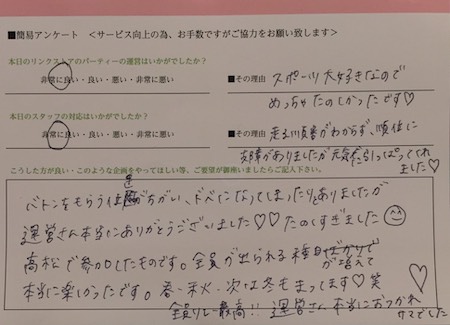 ■簡易アンケート ＜サービス向上の為、お手数ですがご協力をお願い致します＞
本日のリンクストアのパーティーの運営はいかがでしたか？
非常に良い・良い・悪い・非常に悪い
■その理由 スポーツ大好きなので
めっちゃたのしかったです♡
本日のスタッフの対応はいかがでしたか？
非常に良い・良い・悪い・非常に悪い
■その理由 走る順番がわからず、順位に
支障がありましたが元気に引っぱってくれ
ました♡
こうした方が良い・このような企画をやってほしい等、ご要望が御座いましたらご記入下さい。
バトンをもらう位置がちがい、ドベになってしまったりありましたが
運営さん本当にありがとうございました♡♡たのしすぎました
高松で参加したものです。全員が出られる種目
が増えて
本当に楽しかったです。春・秋・次は冬もまってます♡笑
全員リレー最高!! 運営さん本当におつかれ
サマでした